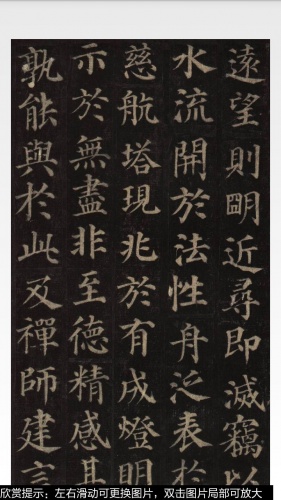 遠望則明近尋即滅竊以
水流開於法性舟泛表於
慈航塔現兆於有成燈明
示於無盡非至德精感其
孰能與於此及禪師建言
欣赏提示：左右滑动可更换图片，双击图片局部可放大